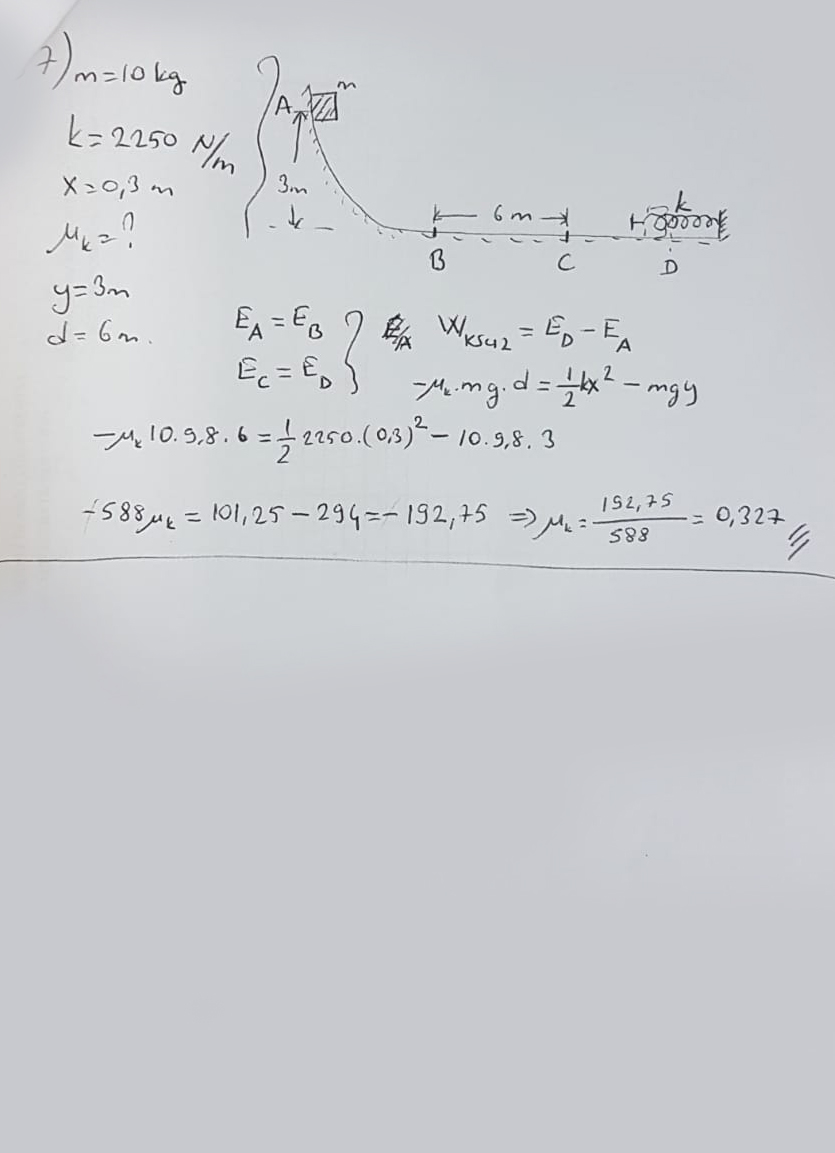 7) m=10 kg
k=2250 N/m
x=0,3 m
μk=?
y=3m
d=6m.
A m
3m
6m k
B C D
EA = EB
EC = ED
= ED − EA
−μk.mg.d = 1/2 kx² − mgy
−μk 10.9,8.6 = 1/2 2250.(0,3)² − 10.9,8.3
−588μk = 101,25 − 294 = −192,75 ⇒ μk = 192,75/588 = 0,327